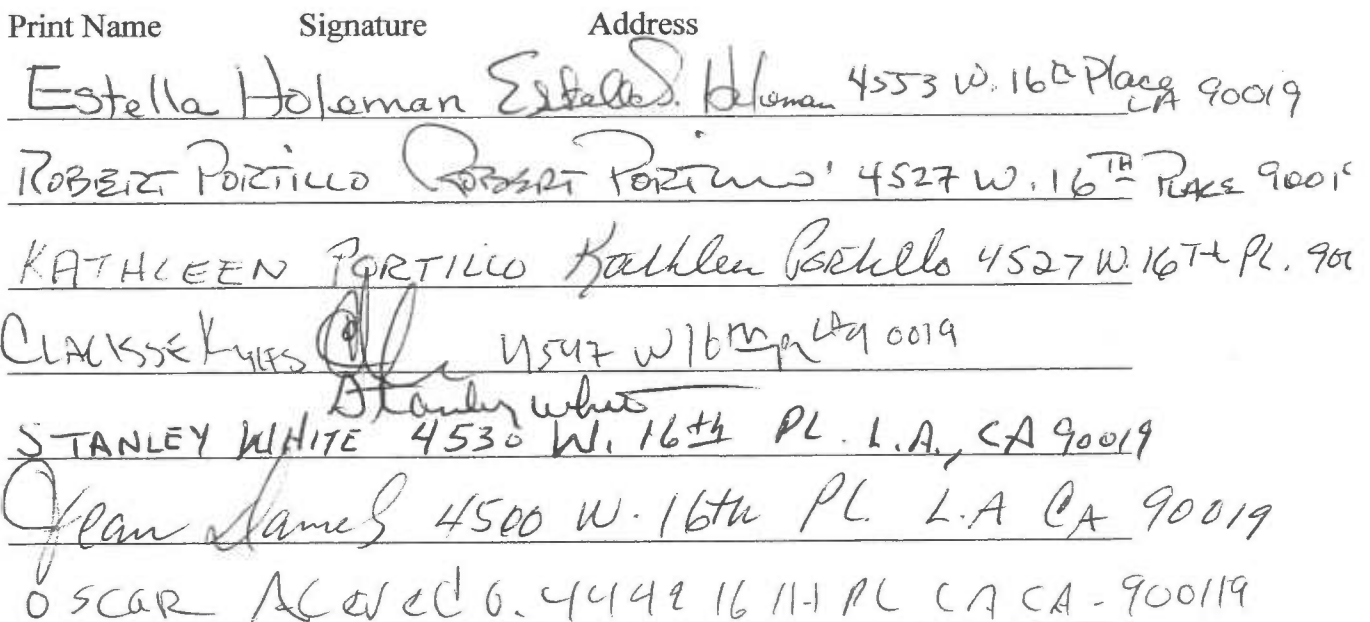 Print Name Signature Address
Estella Holeman Estella S. Holeman 4553 W. 16th Place LA 90019
ROBERT PORTILLO ROBERT PORTILLO 4527 W. 16TH PLACE 9001
KATHLEEN PORTILLO Kathleen Portillo 4527 W. 16Th PL. 900
KYLES 4547 W 16th 90019
Stanley White
STANLEY WHITE 4530 W. 16th PL. L.A., CA 90019
Jean James 4500 W. 16th PL. L.A CA 90019
OSCAR ACevedo. 16 TH PL CA - 900119